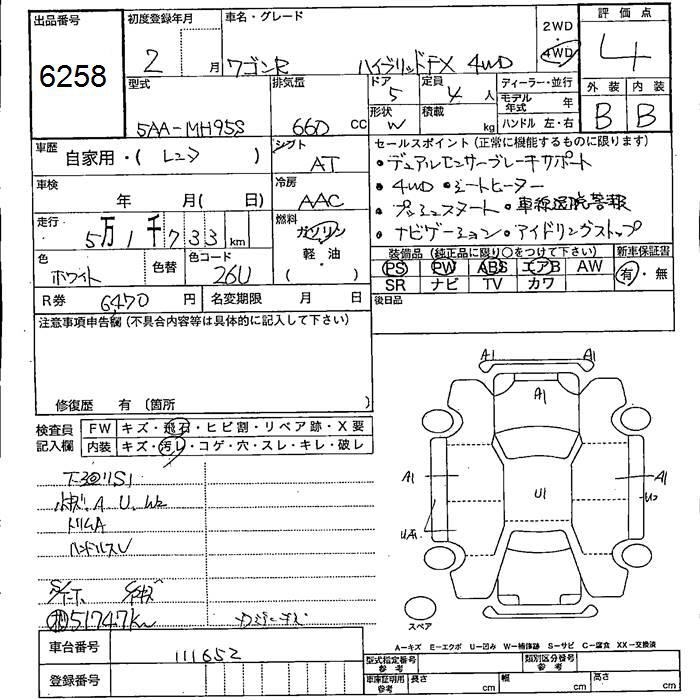 出品番号
6258
初度登録年月
2 月
車名・グレード
ワゴンR ハイブリッドFX 4WD
2WD
・
4WD
評価点
4
外装 内装
B B
型式
5AA-MH95S
排気量
660 CC
ドア
5
定員
4 人
形状
W
積載
kg
ディーラー・並行
モデル年式 年
ハンドル 左・右
車歴
自家用・( レンタ )
シフト
AT
車検
年 月( 日)
冷房
AAC
走行
5万1千733km
燃料
ガソリン
・
軽・油
( )
色
ホワイト
色替
色コード
26U
R券
6470円
名変期限 月 日
セールスポイント (正常に機能するものに限ります)
・デュアルセンサーブレーキサポート
・4WD ・シートヒーター
・プッシュスタート ・車線逸脱警報
・ナビゲーション ・アイドリングストップ
装備品 (純正品に限り○をつけて下さい)
PS PW ABS エアB AW
SR ナビ TV カワ
新車保証書
有・無
後日品
注意事項申告欄 (不具合内容等は具体的に記入して下さい)
修復歴 有 (箇所 )
検査員記入欄
FW キズ・飛石・ヒビ割・リペア跡・X要
内装 キズ・汚れ・コゲ・穴・スレ・キレ・破レ
A.U.W2
トリムA
ハンドルスレ
51747km
A1 A1
A1
A1 A1
U1 U2
スペア
A-キズ E-エクボ U-凹み W-補修跡 S-サビ C-腐食 XX-交換済
車台番号
111652
登録番号
型式指定番号 参考
類別区分番号 参考
車庫証明用 参考
長さ cm 幅 cm 高さ cm